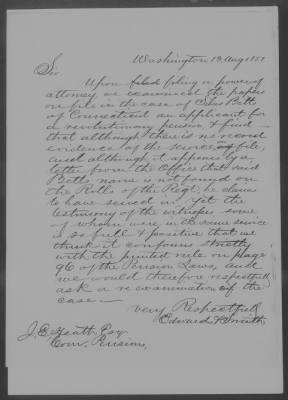 Washington 19 Aug 1851
Sir.
Upon filing a power of
attorney we examined the papers
on file in the case of Betts
of Connecticut an applicant for
a revolutionary pension & find
that although there is no record
evidence of the service on file,
and although it appears by a
letter from the Office that said
Betts name is not found on
the Rolls of the Regt. he claims
to have served in, yet the
testimony of the witnesses some
of whom were in the same service
is so full & positive that we
think it conforms strictly
with the printed rule on page
96 of the Pension Laws, and
we would therefore respectfully
ask a re-examination of the
case—
Very Respectfully
Edward Smith
J. E. Heath Esq
Com. Pensions,